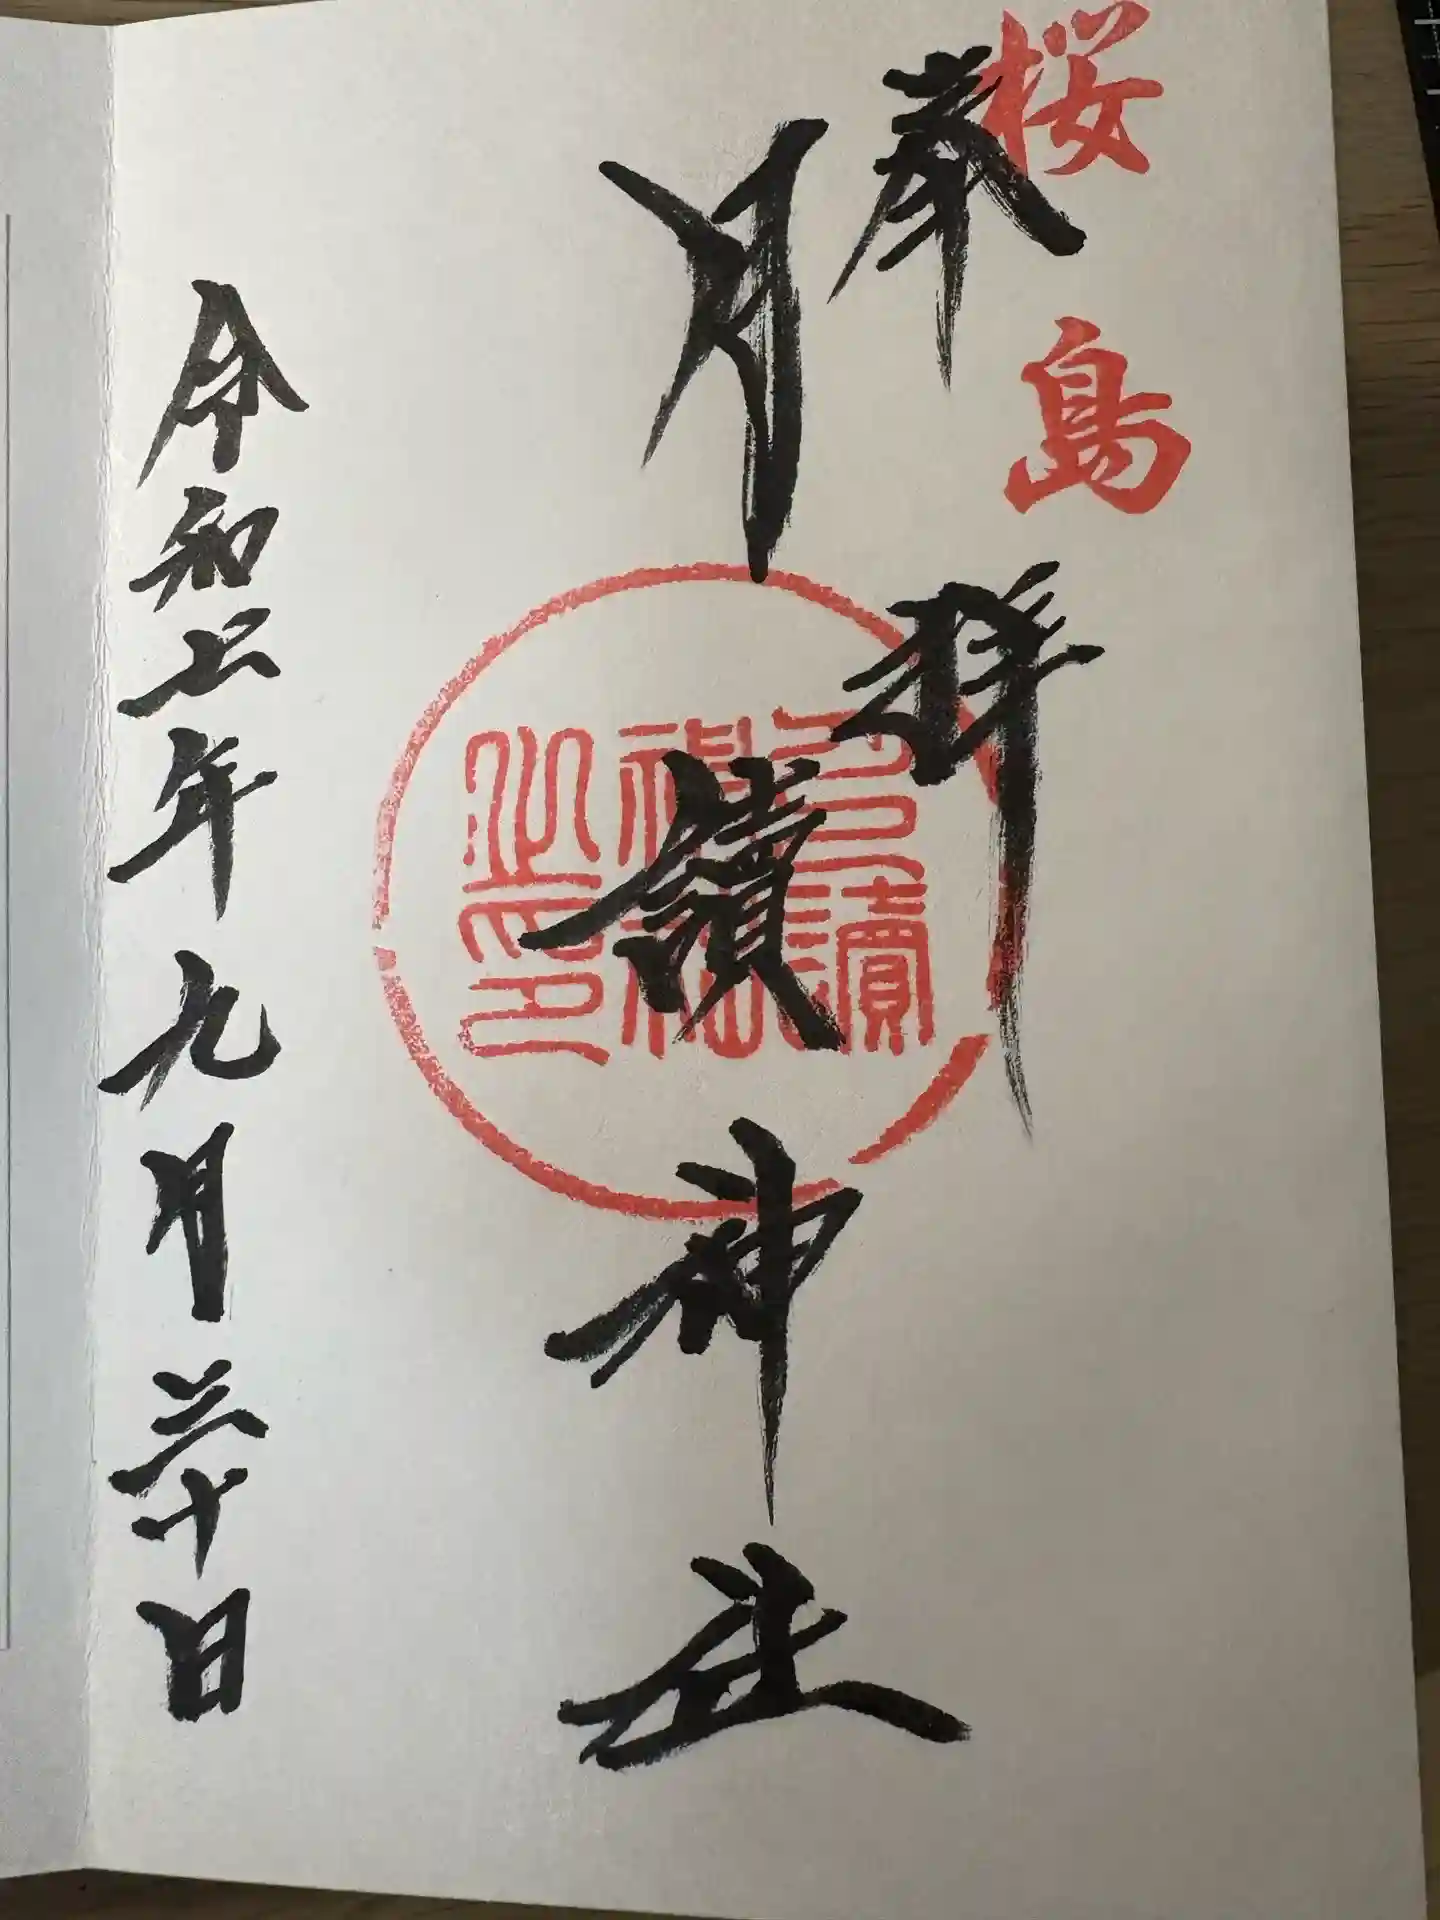 桜島
奉拝
月讀神社
月讀
神社
之印
令和五年九月三十日